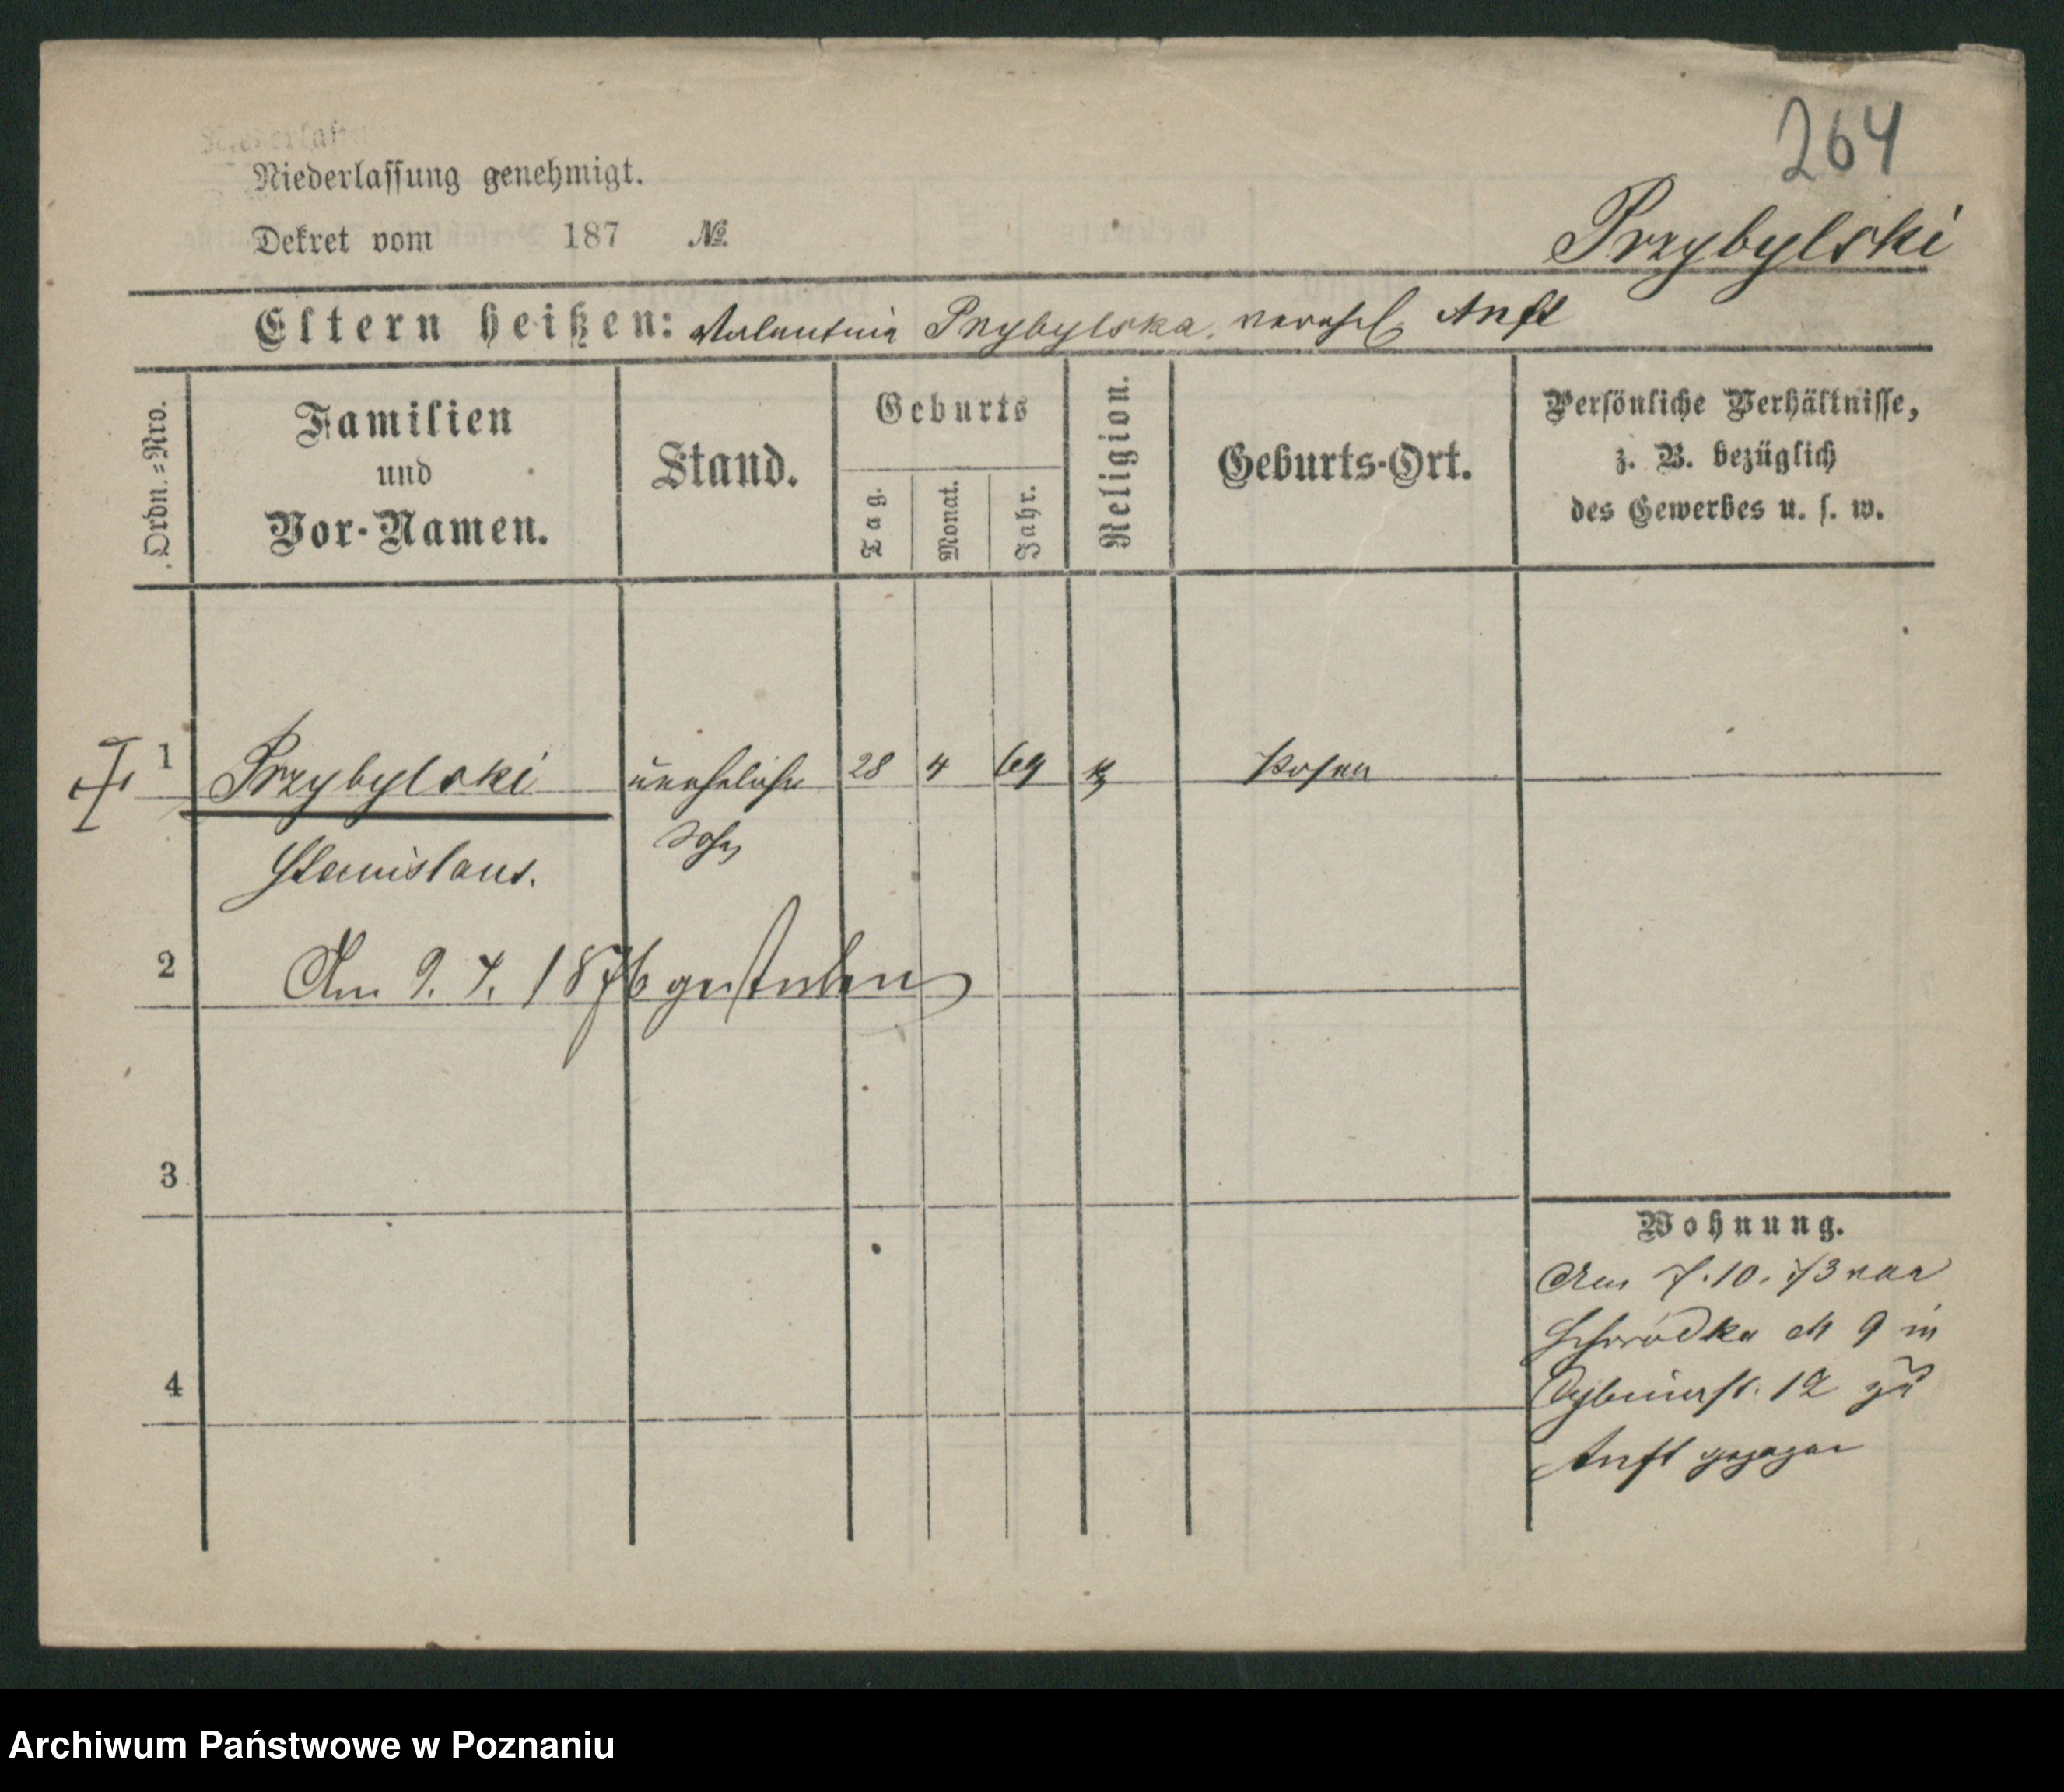 264
Niederlassung genehmigt.
Dekret vom 187 №
Przybylski
Eltern heißen: Valentina Przybylska verehel. Anft
Ordn.-Nro.
Familien und Vor-Namen.
Stand.
Geburts
Tag. Monat. Jahr.
Religion.
Geburts-Ort.
Persönliche Verhältnisse,
z. B. bezüglich
des Gewerbes u. s. w.
1 Przybylski unehelicher 28 4 69 k Posen
Sohn
Stanislaus.
2 Am 9. 7. 1876 gestorben
3
4
Wohnung.
Am 7. 10. 73 von
Schrodka № 9 in
12 zu
Anft gezogen
Archiwum Państwowe w Poznaniu